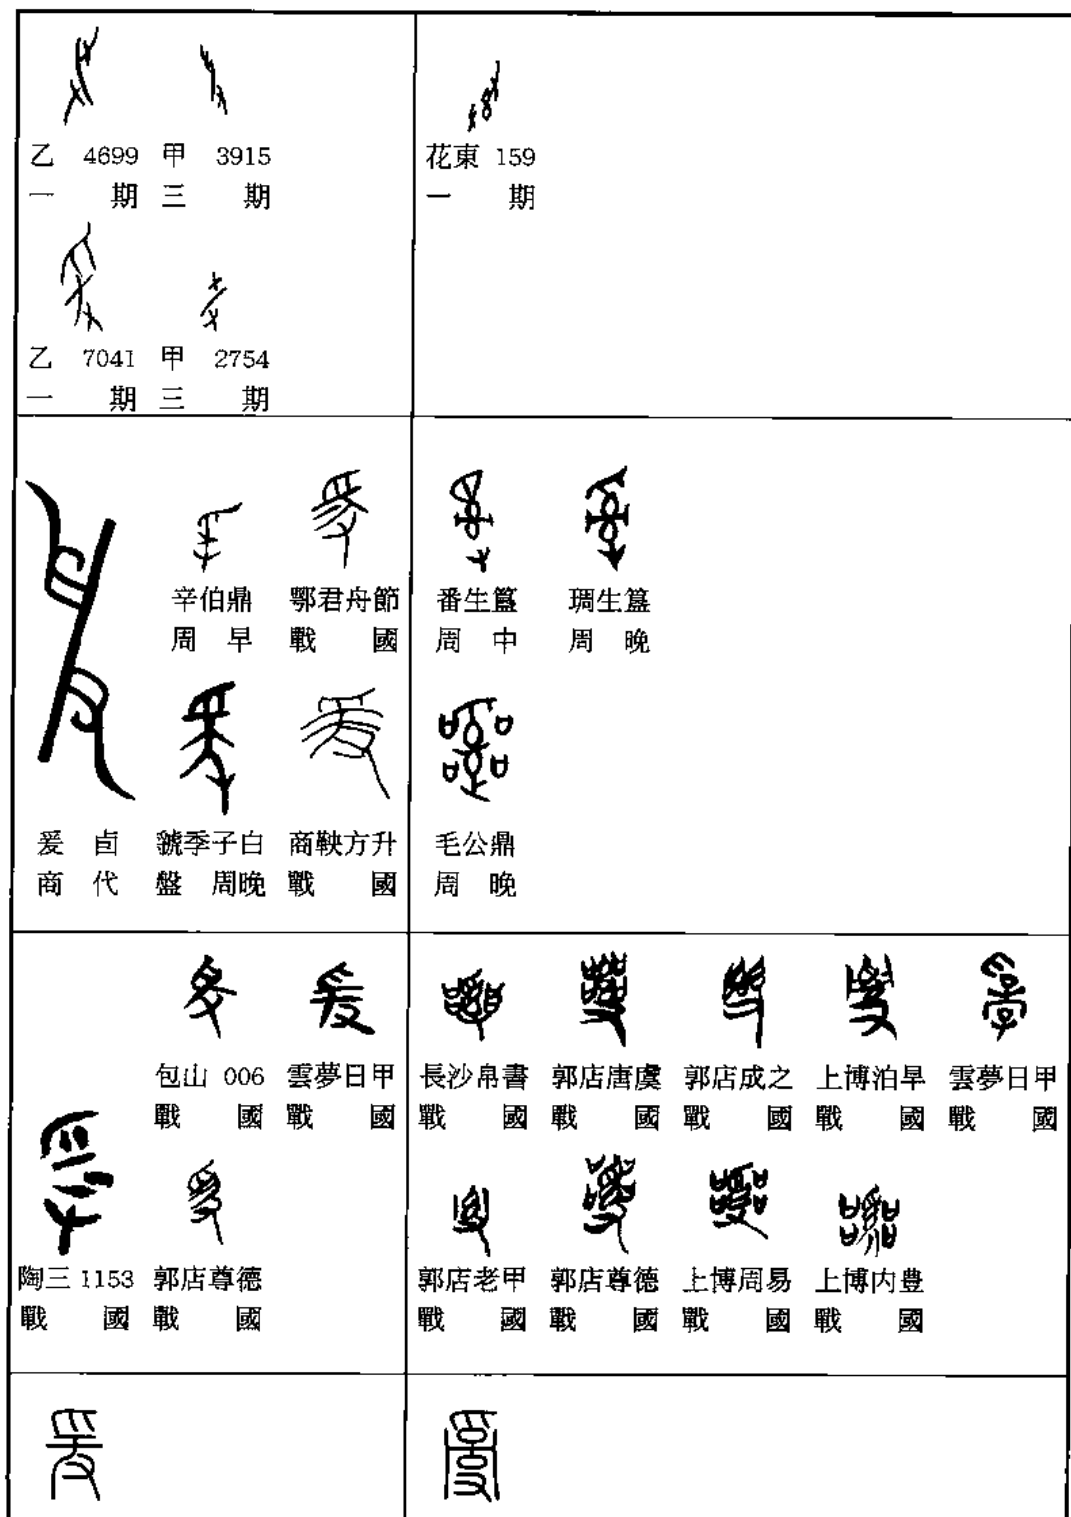 乙 4699 甲 3915
一 期 三 期
乙 7041 甲 2754
一 期 三 期
花東 159
一 期
辛伯鼎 鄂君舟節
周 早 戰 國
爰 卣 虢季子白 商鞅方升
商 代 盤 周晚 戰 國
番生簋 琱生簋
周 中 周 晚
毛公鼎
周 晚
包山 006 雲夢日甲
戰 國 戰 國
陶三 1153 郭店尊德
戰 國 戰 國
長沙帛書 郭店唐虞 郭店成之 上博泊旱 雲夢日甲
戰 國 戰 國 戰 國 戰 國 戰 國
郭店老甲 郭店尊德 上博周易 上博内豊
戰 國 戰 國 戰 國 戰 國